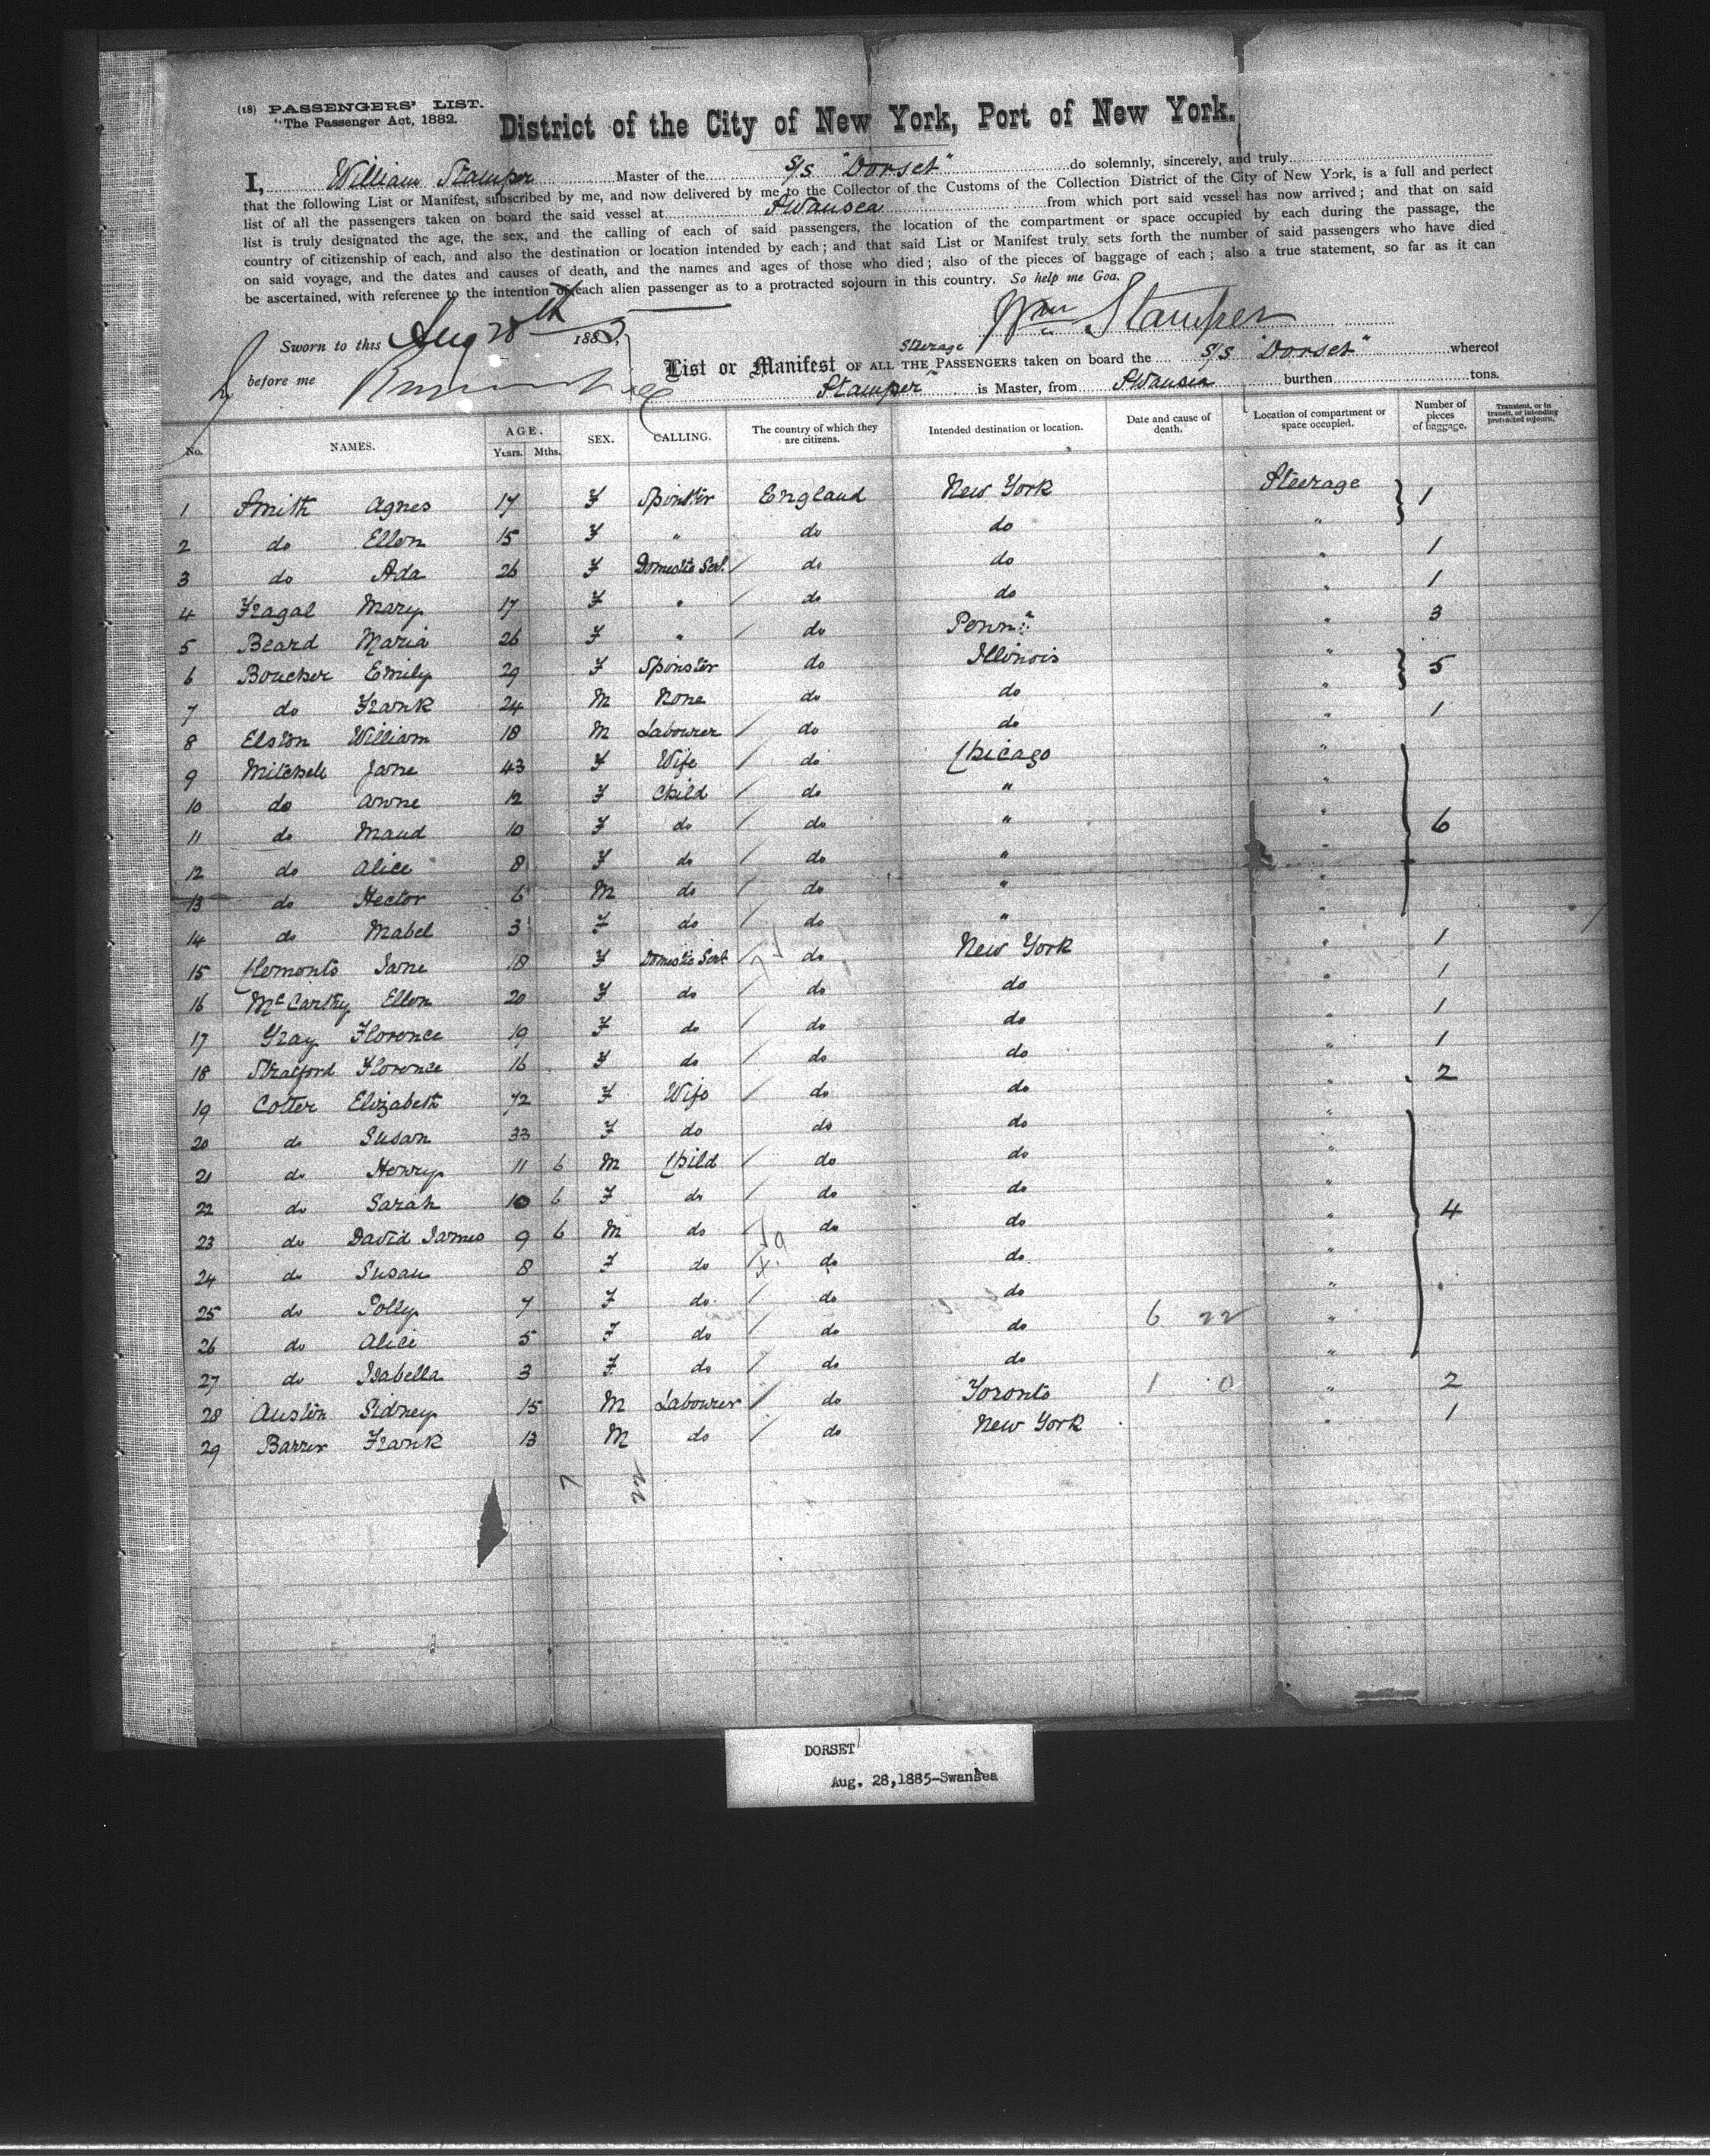 (18) PASSENGERS' LIST.
"The Passenger Act, 1882.
District of the City of New York, Port of New York.
I, William Stamper Master of the S/S "Dorset" do solemnly, sincerely, and truly
that the following List or Manifest, subscribed by me, and now delivered by me to the Collector of the Customs of the Collection District of the City of New York, is a full and perfect
list of all the passengers taken on board the said vessel at Swansea from which port said vessel has now arrived; and that on said
list is truly designated the age, the sex, and the calling of each of said passengers, the location of the compartment or space occupied by each during the passage, the
country of citizenship of each, and also the destination or location intended by each; and that said List or Manifest truly sets forth the number of said passengers who have died
on said voyage, and the dates and causes of death, and the names and ages of those who died; also of the pieces of baggage of each; also a true statement, so far as it can
be ascertained, with reference to the intention of each alien passenger as to a protracted sojourn in this country. So help me God.
Wm Stamper
Sworn to this Aug 28th 1885
before me
List or Manifest OF ALL THE Steerage PASSENGERS taken on board the S/S "Dorset" whereof
Stamper is Master, from Swansea burthen tons.
No. NAMES. AGE. Years. Mths. SEX. CALLING. The country of which they are citizens. Intended destination or location. Date and cause of death. Location of compartment or space occupied. Number of pieces of baggage. Transient, or in transit, or intending protracted sojourn.
1 Smith Agnes 17 F Spinster England New York Steerage 1
2 do Ellen 15 F " do do "
3 do Ada 26 F Domestic Sert. do do " 1
4 Fragal Mary 17 F " do do " 1
5 Beard Maria 26 F " do Penn: " 3
6 Boucher Emily 29 F Spinster do Illinois " 5
7 do Frank 24 M None do do "
8 Elston William 18 M Labourer do do " 1
9 Mitchell Jane 43 F Wife do Chicago " 6
10 do Anne 12 F Child do " "
11 do Maud 10 F do do " "
12 do Alice 8 F do do " "
13 do Hector 6 M do do " "
14 do Mabel 3 F do do " "
15 Clemonts Jane 18 F Domestic Sert do New York " 1
16 McCarthy Ellen 20 F do do do " 1
17 Gray Florence 19 F do do do " 1
18 Stratford Florence 16 F do do do " 1
19 Cotter Elizabeth 72 F Wife do do " 2
20 do Susan 33 F do do do "
21 do Henry 11 6 M Child do do "
22 do Sarah 10 6 F do do do "
23 do David James 9 6 M do do do " 4
24 do Susan 8 F do do do "
25 do Polly 7 F do do do "
26 do Alice 5 F do do do 6 22 "
27 do Isabella 3 F do do do "
28 Austin Sidney 15 M Labourer do Toronto 1 0 " 2
29 Barrer Frank 13 M do do New York " 1
7 22
DORSET
Aug. 28,1885-Swansea